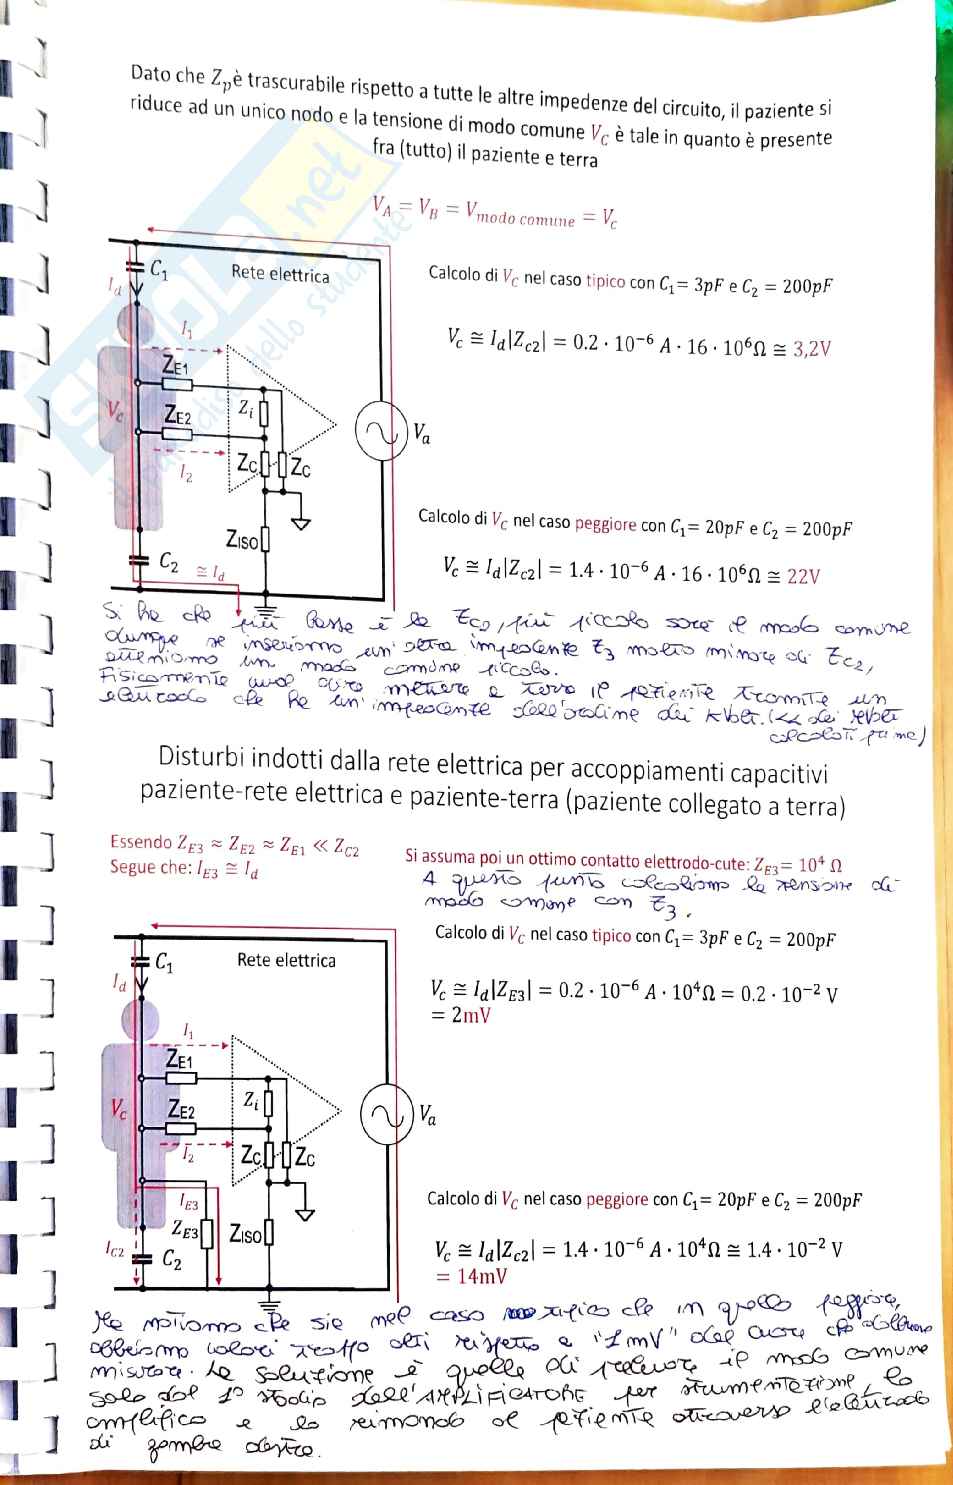 Dato che Zp è trascurabile rispetto a tutte le altre impedenze del circuito, il paziente si
riduce ad un unico nodo e la tensione di modo comune VC è tale in quanto è presente
fra (tutto) il paziente e terra
VA = VB = Vmodo comune = Vc
C1
Rete elettrica
Id
I1
ZE1
Zi
Vc
ZE2
I2
ZC
ZC
Va
ZISO
C2
≅ Id
Calcolo di VC nel caso tipico con C1= 3pF e C2 = 200pF
Vc ≅ Id|Zc2| = 0.2 · 10⁻⁶ A · 16 · 10⁶Ω ≅ 3,2V
Calcolo di VC nel caso peggiore con C1= 20pF e C2 = 200pF
Vc ≅ Id|Zc2| = 1.4 · 10⁻⁶ A · 16 · 10⁶Ω ≅ 22V
Si ha che più bassa è la ZC2, più piccolo sarà il modo comune
dunque se inseriamo un'altra impedente Z3 molto minore di ZC2,
otteniamo un modo comune piccolo.
Fisicamente vuol dire mettere a terra il paziente tramite un
elettrodo che ha un'impedente dell'ordine dei kVolt. (<< dei
calcolati prima)
Disturbi indotti dalla rete elettrica per accoppiamenti capacitivi
paziente-rete elettrica e paziente-terra (paziente collegato a terra)
Essendo ZE3 ≈ ZE2 ≈ ZE1 ≪ ZC2
Segue che: IE3 ≅ Id
Si assuma poi un ottimo contatto elettrodo-cute: ZE3= 10⁴ Ω
A questo punto calcoliamo la tensione di
modo comune con Z3.
C1
Rete elettrica
Id
I1
ZE1
Zi
Vc
ZE2
I2
ZC
ZC
Va
IE3
ZE3
ZISO
IC2
C2
Calcolo di VC nel caso tipico con C1= 3pF e C2 = 200pF
Vc ≅ Id|ZE3| = 0.2 · 10⁻⁶ A · 10⁴Ω = 0.2 · 10⁻² V
= 2mV
Calcolo di VC nel caso peggiore con C1= 20pF e C2 = 200pF
Vc ≅ Id|Zc2| = 1.4 · 10⁻⁶ A · 10⁴Ω ≅ 1.4 · 10⁻² V
= 14mV
Ma notiamo che sia nel caso tipico che in quello peggiore,
abbiamo valori troppo alti rispetto a "1mV" del cuore che dobbiamo
misurare. La soluzione è quella di prelevare il modo comune
solo dal 1° stadio dell'AMPLIFICATORE per strumentazione, lo
amplifico e lo rimando al paziente attraverso l'elettrodo
di gamba destra.